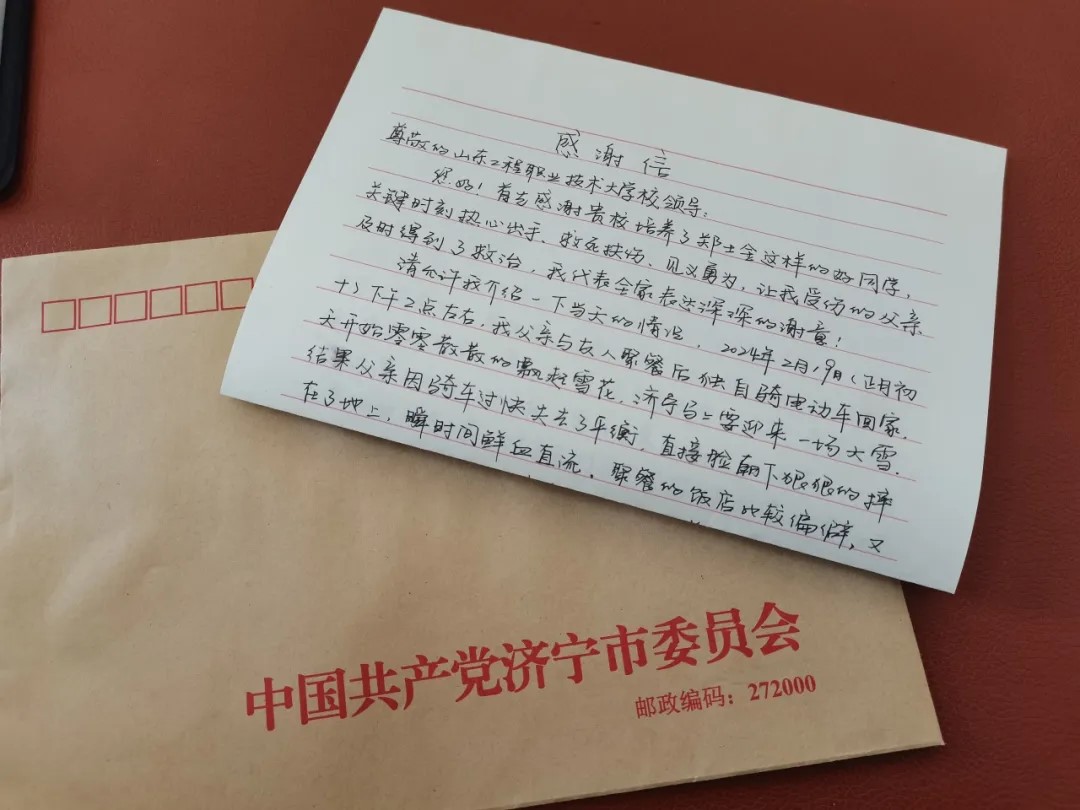 感谢信
尊敬的山东工程职业技术大学校领导:
您好!首先感谢贵校培养了郑士全这样的好同学,
关键时刻热心出手、救死扶伤、见义勇为,让我受伤的父亲
及时得到了救治,我代表全家表达深深的谢意!
请允许我介绍一下当天的情况,2024年2月19日(正月初
十)下午2点左右,我父亲与友人聚餐后独自骑电动车回家.
天开始零零散散的飘起雪花,济宁马上要迎来一场大雪.
结果父亲因骑车过快失去了平衡,直接脸朝下狠狠的摔
在了地上,瞬时间鲜血直流.聚餐的饭店比较偏僻,又
中国共产党济宁市委员会
邮政编码:272000